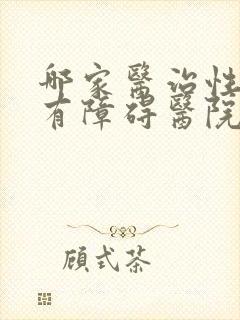 邮家醫治性
有障碍醫院
顾式茶